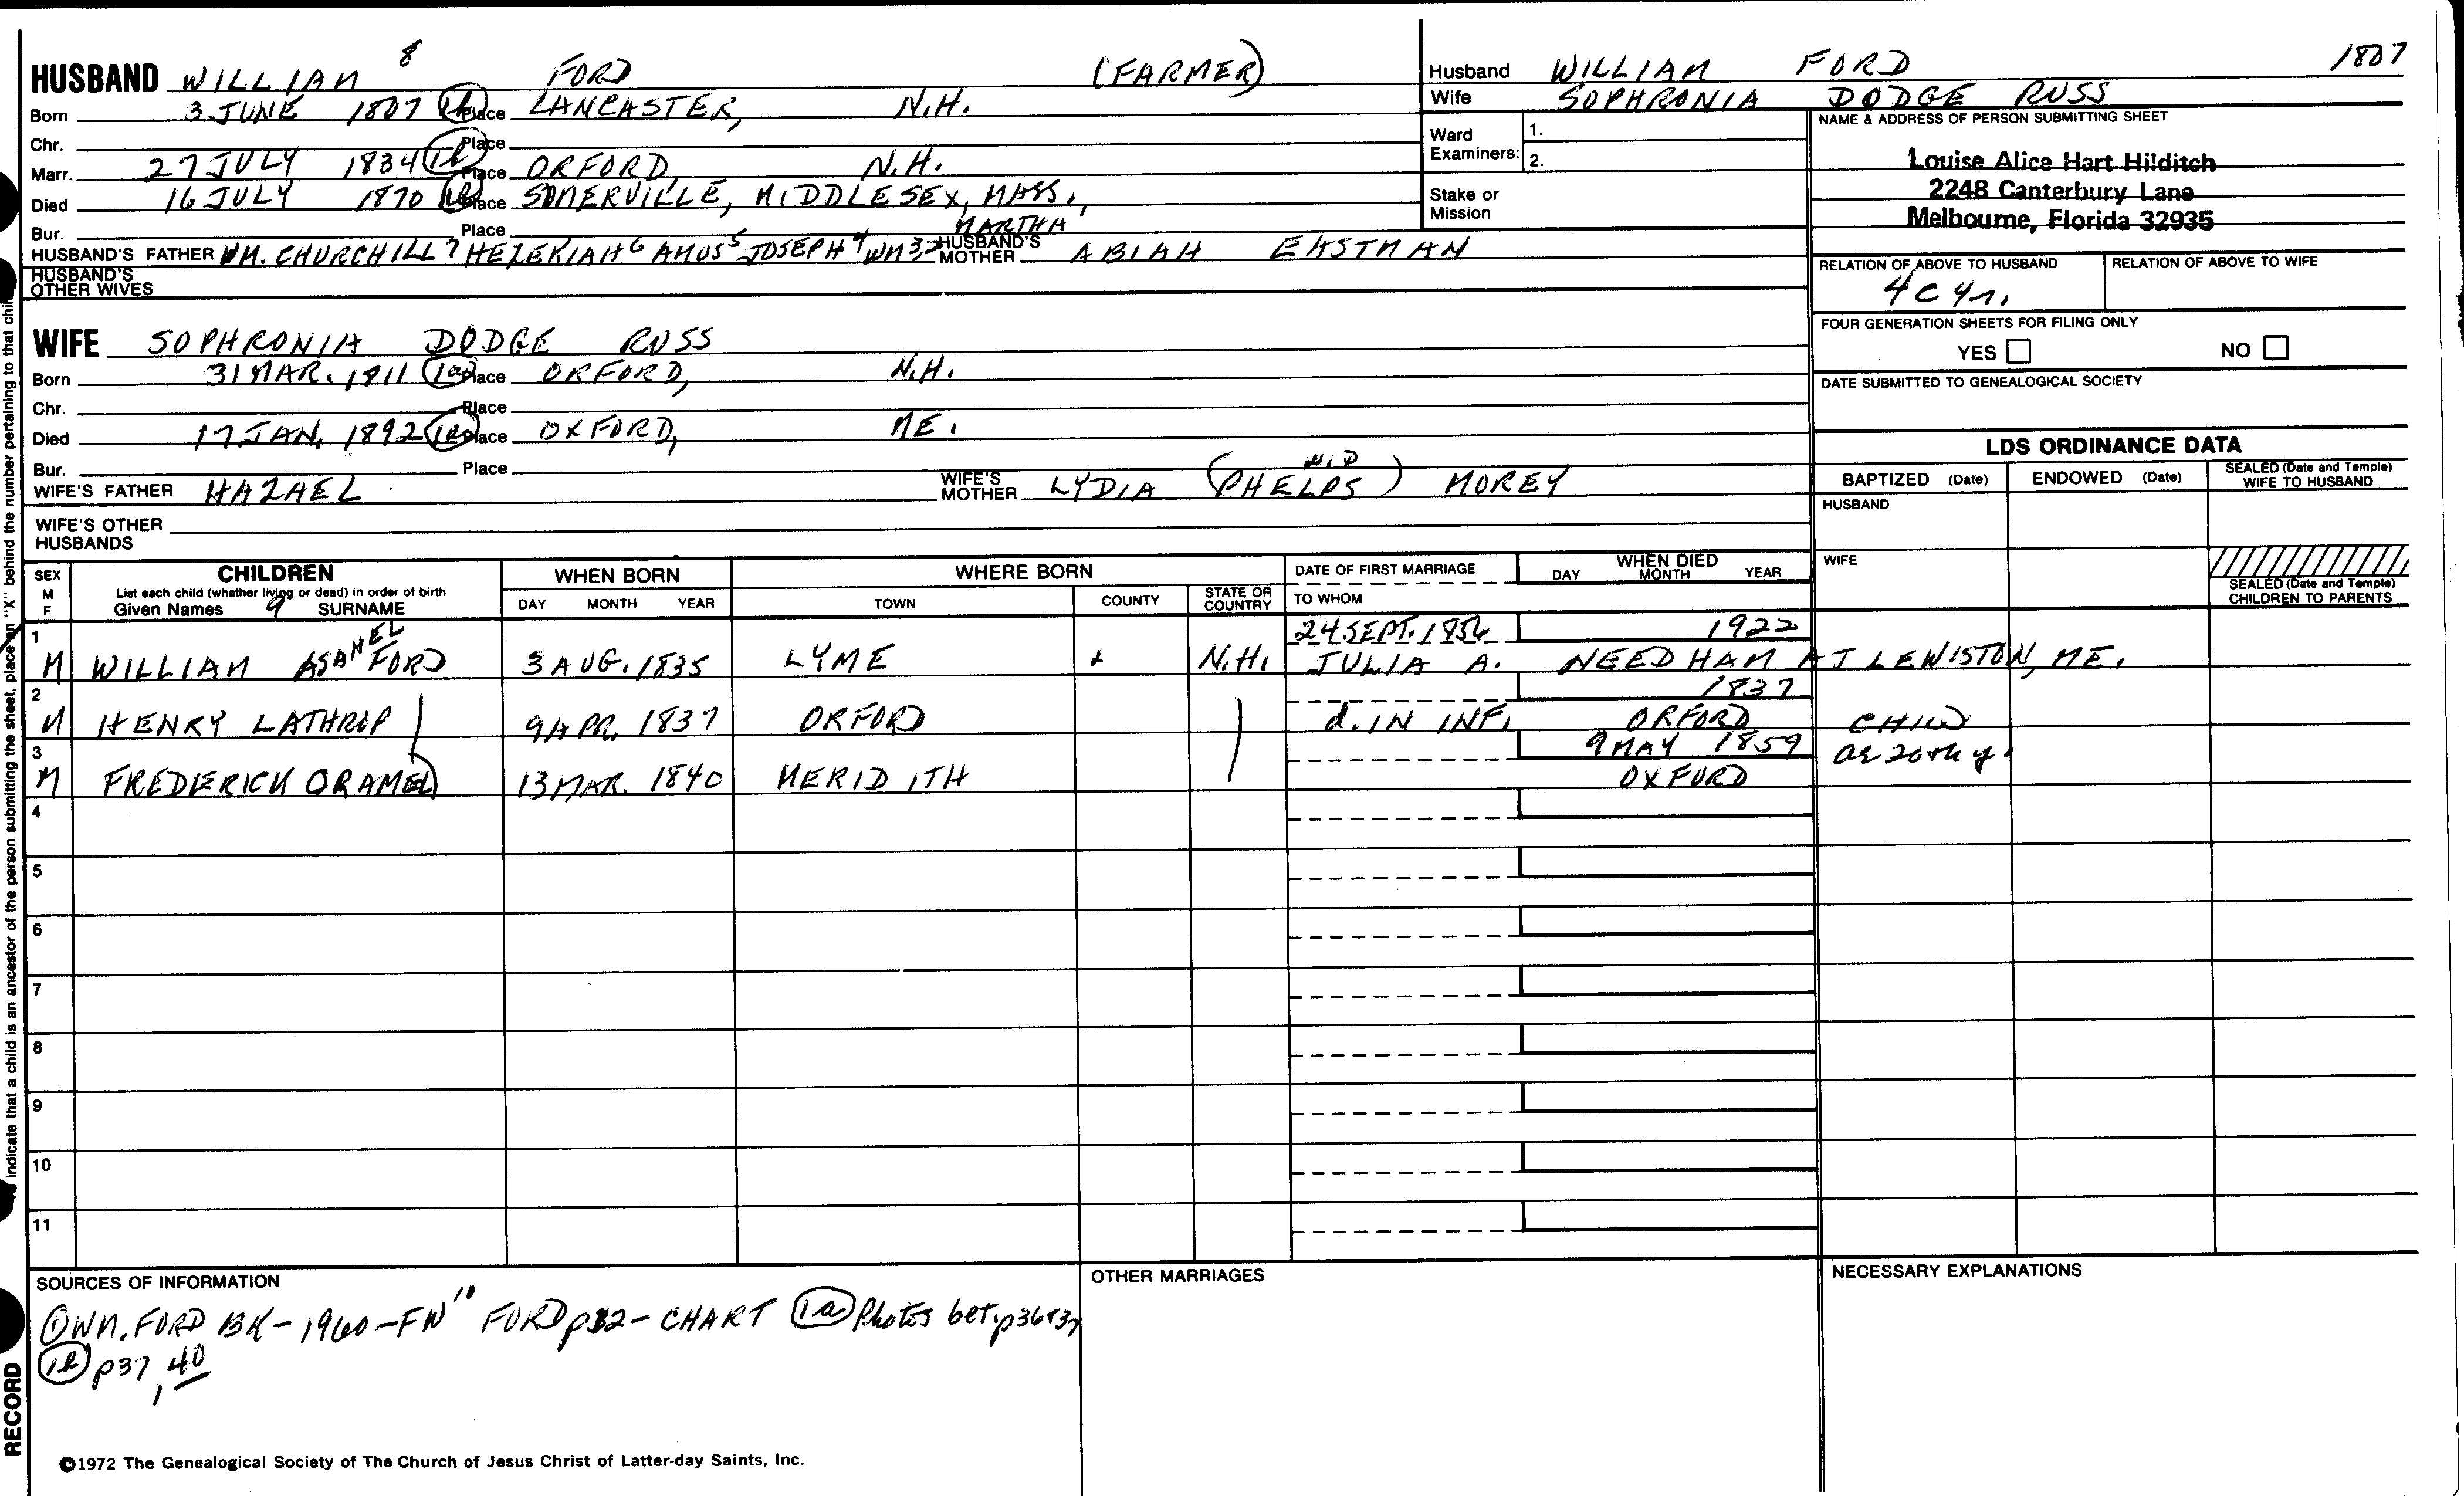 HUSBAND WILLIAM 8 FORD (FARMER)
Born 3 JUNE 1807 (1b) Place LANCASTER, N.H.
Chr. Place
Marr. 27 JULY 1834 (1b) Place ORFORD, N.H.
Died 16 JULY 1870 Place SOMERVILLE, MIDDLESEX, MASS.,
Bur. Place
HUSBAND'S FATHER WM. CHURCHILL 7 HEZEKIAH 6 AMOS 5 JOSEPH 4 WM 32 HUSBAND'S MOTHER MARTHA ABIAH EASTMAN
HUSBAND'S OTHER WIVES
Husband WILLIAM FORD 1807
Wife SOPHRONIA DODGE RUSS
Ward Examiners: 1.
2.
Stake or Mission
NAME & ADDRESS OF PERSON SUBMITTING SHEET
Louise Alice Hart Hilditch
2248 Canterbury Lane
Melbourne, Florida 32935
RELATION OF ABOVE TO HUSBAND RELATION OF ABOVE TO WIFE
4C 4r.
FOUR GENERATION SHEETS FOR FILING ONLY
YES NO
DATE SUBMITTED TO GENEALOGICAL SOCIETY
WIFE SOPHRONIA DODGE RUSS
Born 31 MAR. 1811 (1a) Place ORFORD, N.H.
Chr. Place
Died 17 JAN. 1892 (1a) Place OXFORD, ME.
Bur. Place
WIFE'S FATHER HAZAEL WIFE'S MOTHER LYDIA (PHELPS) WID MOREY
WIFE'S OTHER HUSBANDS
LDS ORDINANCE DATA
BAPTIZED (Date) ENDOWED (Date) SEALED (Date and Temple) WIFE TO HUSBAND
HUSBAND
WIFE
SEALED (Date and Temple) CHILDREN TO PARENTS
SEX M F
CHILDREN
List each child (whether living or dead) in order of birth
Given Names 9 SURNAME
WHEN BORN
DAY MONTH YEAR
WHERE BORN
TOWN COUNTY STATE OR COUNTRY
DATE OF FIRST MARRIAGE
TO WHOM
WHEN DIED
DAY MONTH YEAR
1 24 SEPT. 1856 1922
M WILLIAM ASAHEL FORD 3 AUG. 1835 LYME N.H. JULIA A. NEEDHAM AT LEWISTON, ME.
2 1837
M HENRY LATHROP 9 APR. 1837 ORFORD d. IN INF. ORFORD CHILD
3 9 MAY 1859
M FREDERICK ORAMEL 13 MAR. 1840 MERIDITH OXFORD ae 20th y.
4
5
6
7
8
9
10
11
SOURCES OF INFORMATION
(1) WM. FORD BK-1960-FN" 10 FORD p32-CHART (1a) Photos bet. p36+37
(1b) p37, 40
OTHER MARRIAGES
NECESSARY EXPLANATIONS
©1972 The Genealogical Society of The Church of Jesus Christ of Latter-day Saints, Inc.
indicate that a child is an ancestor of the person submitting the sheet, place an "X" behind the number pertaining to that
RECORD